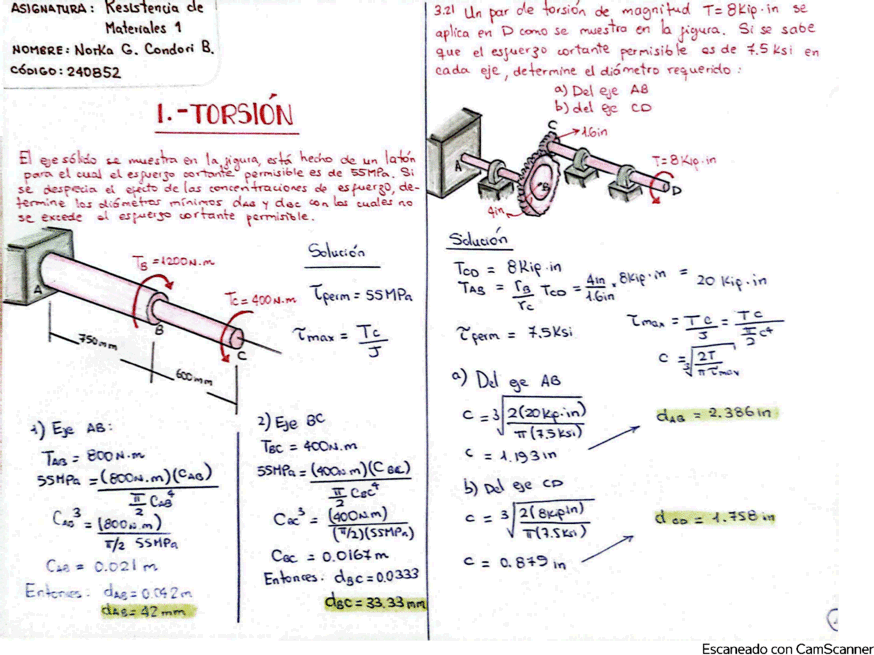 ASIGNATURA: Resistencia de
Materiales 1
NOMBRE: Norka G. Condori B.
CÓDIGO: 240852
1.-TORSIÓN
El eje sólido se muestra en la figura, está hecho de un latón
para el cual el esfuerzo cortante permisible es de 55MPa. Si
se desprecia el efecto de las concentraciones de esfuerzo, de-
termine los diámetros mínimos dAB y dBC con los cuales no
se excede el esfuerzo cortante permisible.
TB = 1200N.m
TC = 400N.m
A
B
C
750mm
600mm
Solución
τperm = 55MPa
τmax = Tc/J
1) Eje AB:
TAB = 800N.m
55MPa = (800N.m)(CAB) / π/2 CAB⁴
CAB³ = (800N.m) / π/2 55MPa
CAB = 0.021 m
Entonces: dAB = 0.042m
dAB = 42 mm
2) Eje BC
TBC = 400N.m
55MPa = (400N.m)(CBC) / π/2 CBC⁴
CBC³ = (400N.m) / (π/2)(55MPa)
CBC = 0.0167m
Entonces: dBC = 0.0333
dBC = 33.33mm
3.21 Un par de torsión de magnitud T = 8Kip.in se
aplica en D como se muestra en la figura. Si se sabe
que el esfuerzo cortante permisible es de 7.5 Ksi en
cada eje, determine el diámetro requerido:
a) Del eje AB
b) del eje CD
C
1.6in
A
B
T=8Kip.in
D
4in
Solución
TCD = 8Kip.in
TAB = rB/rC TCD = 4in/1.6in . 8Kip.in = 20 Kip.in
τperm = 7.5Ksi
τmax = Tc/J = Tc / π/2 c⁴
c = ³√(2T / πτmax)
a) Del eje AB
c = ³√(2(20Kp.in) / π(7.5Ksi))
c = 1.193in
dAB = 2.386in
b) Del eje CD
c = ³√(2(8Kpin) / π(7.5Ksi))
c = 0.879in
dCD = 1.758in
Escaneado con CamScanner